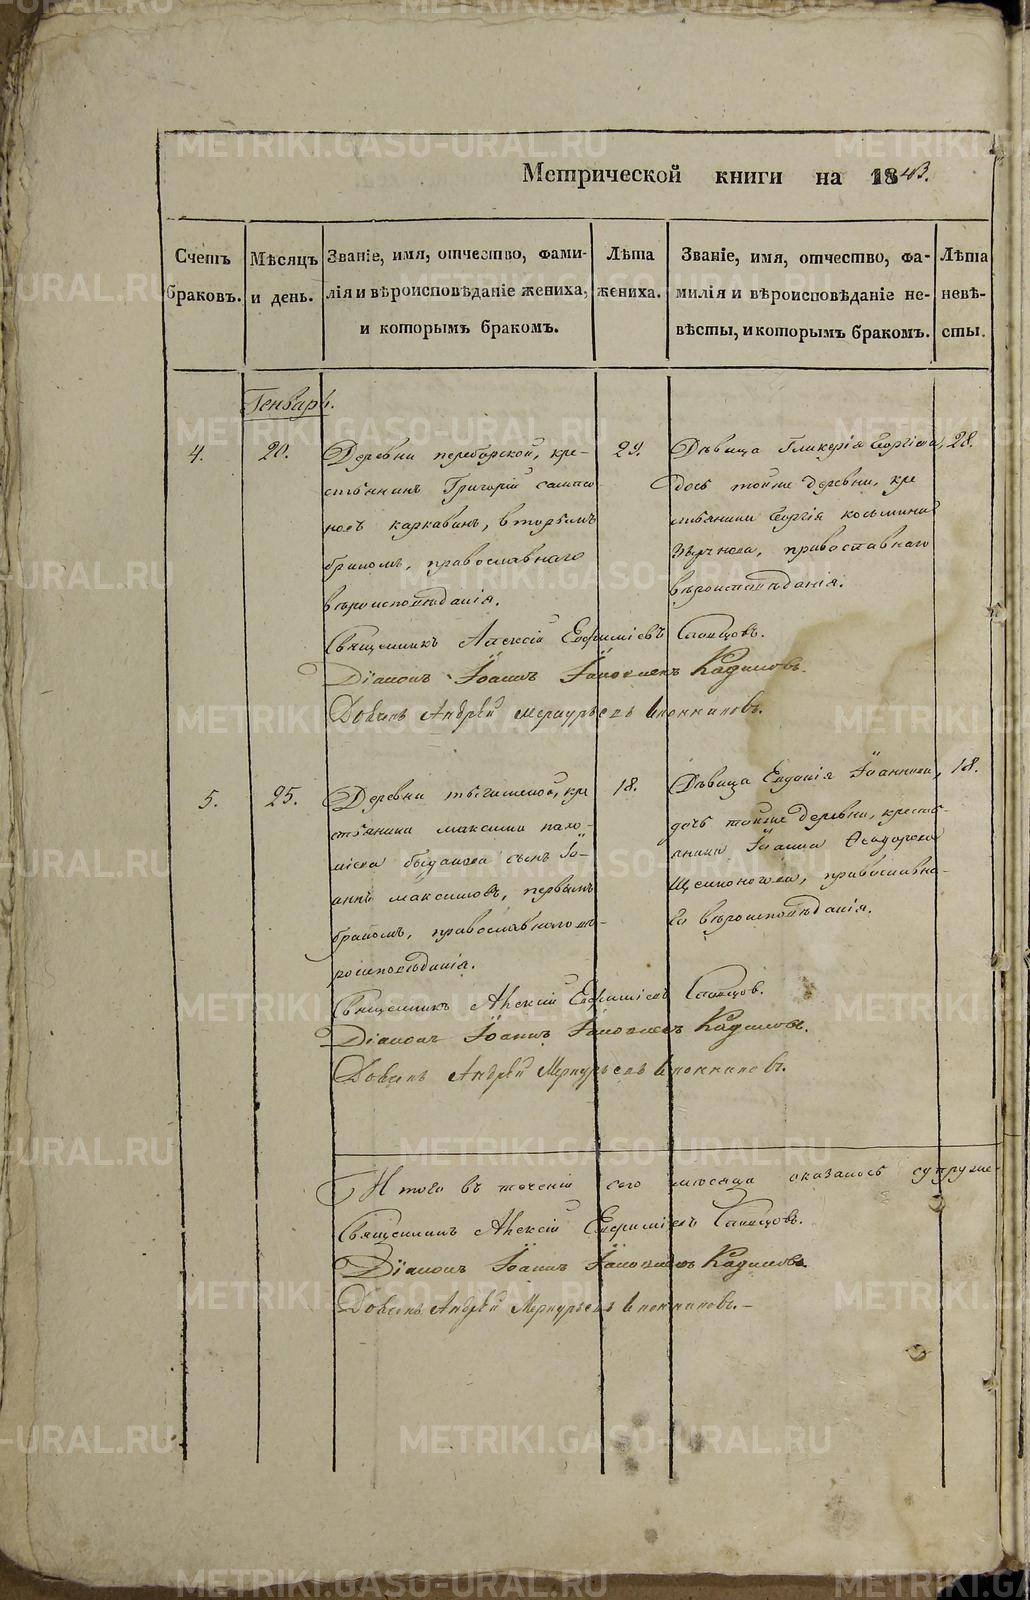 Метрической книги на 1843.
Счетъ браковъ.
Мѣсяцъ и день.
Званіе, имя, отчество, фами-
лія и вѣроисповѣданіе жениха,
и которымъ бракомъ.
Лѣта жениха.
Званіе, имя, отчество, фа-
милія и вѣроисповѣданіе не-
вѣсты, и которымъ бракомъ.
Лѣта невѣ-
сты.
Генварь.
4.
20.
Деревни переборской, кре-
стьянинъ Григорій
вторымъ
бракомъ, православнаго
вѣроисповѣданія.
29.
Дѣвица Гликерія Георгіева,
дочь тойже деревни, кре
стьянина Георгія косьмина
православнаго
вѣроисповѣданія.
28.
Священникъ Алексій Евфиміевъ Слопцовъ.
Діаконъ Іоаннъ Іаковлевъ Кадимовъ.
Дьячекъ Андрей Меркурьевъ
5.
25.
Деревни кре
стьянина максима
сынъ Іо-
аннъ максимовъ, первымъ
бракомъ, православнаго вѣ-
роисповѣданія.
18.
Дѣвица Евдокія Іоаннова,
дочь тойже деревни, кресть-
янина Іоанна Ѳеодорова
Щелконогова, православна-
го вѣроисповѣданія.
18.
Священникъ Алексій Евфиміевъ Слопцов.
Діаконъ Іоаннъ Іаковлевъ Кадимовъ.
Дьячекъ Андрей Меркурьевъ
Итого въ теченіи сего мѣсяца оказалось супруже-
Священникъ Алексій Евфиміевъ Слопцовъ.
Діаконъ Іоаннъ Іаковлевъ Кадимовъ.
Дьячекъ Андрей Меркурьевъ
METRIKI.GASO-URAL.RU